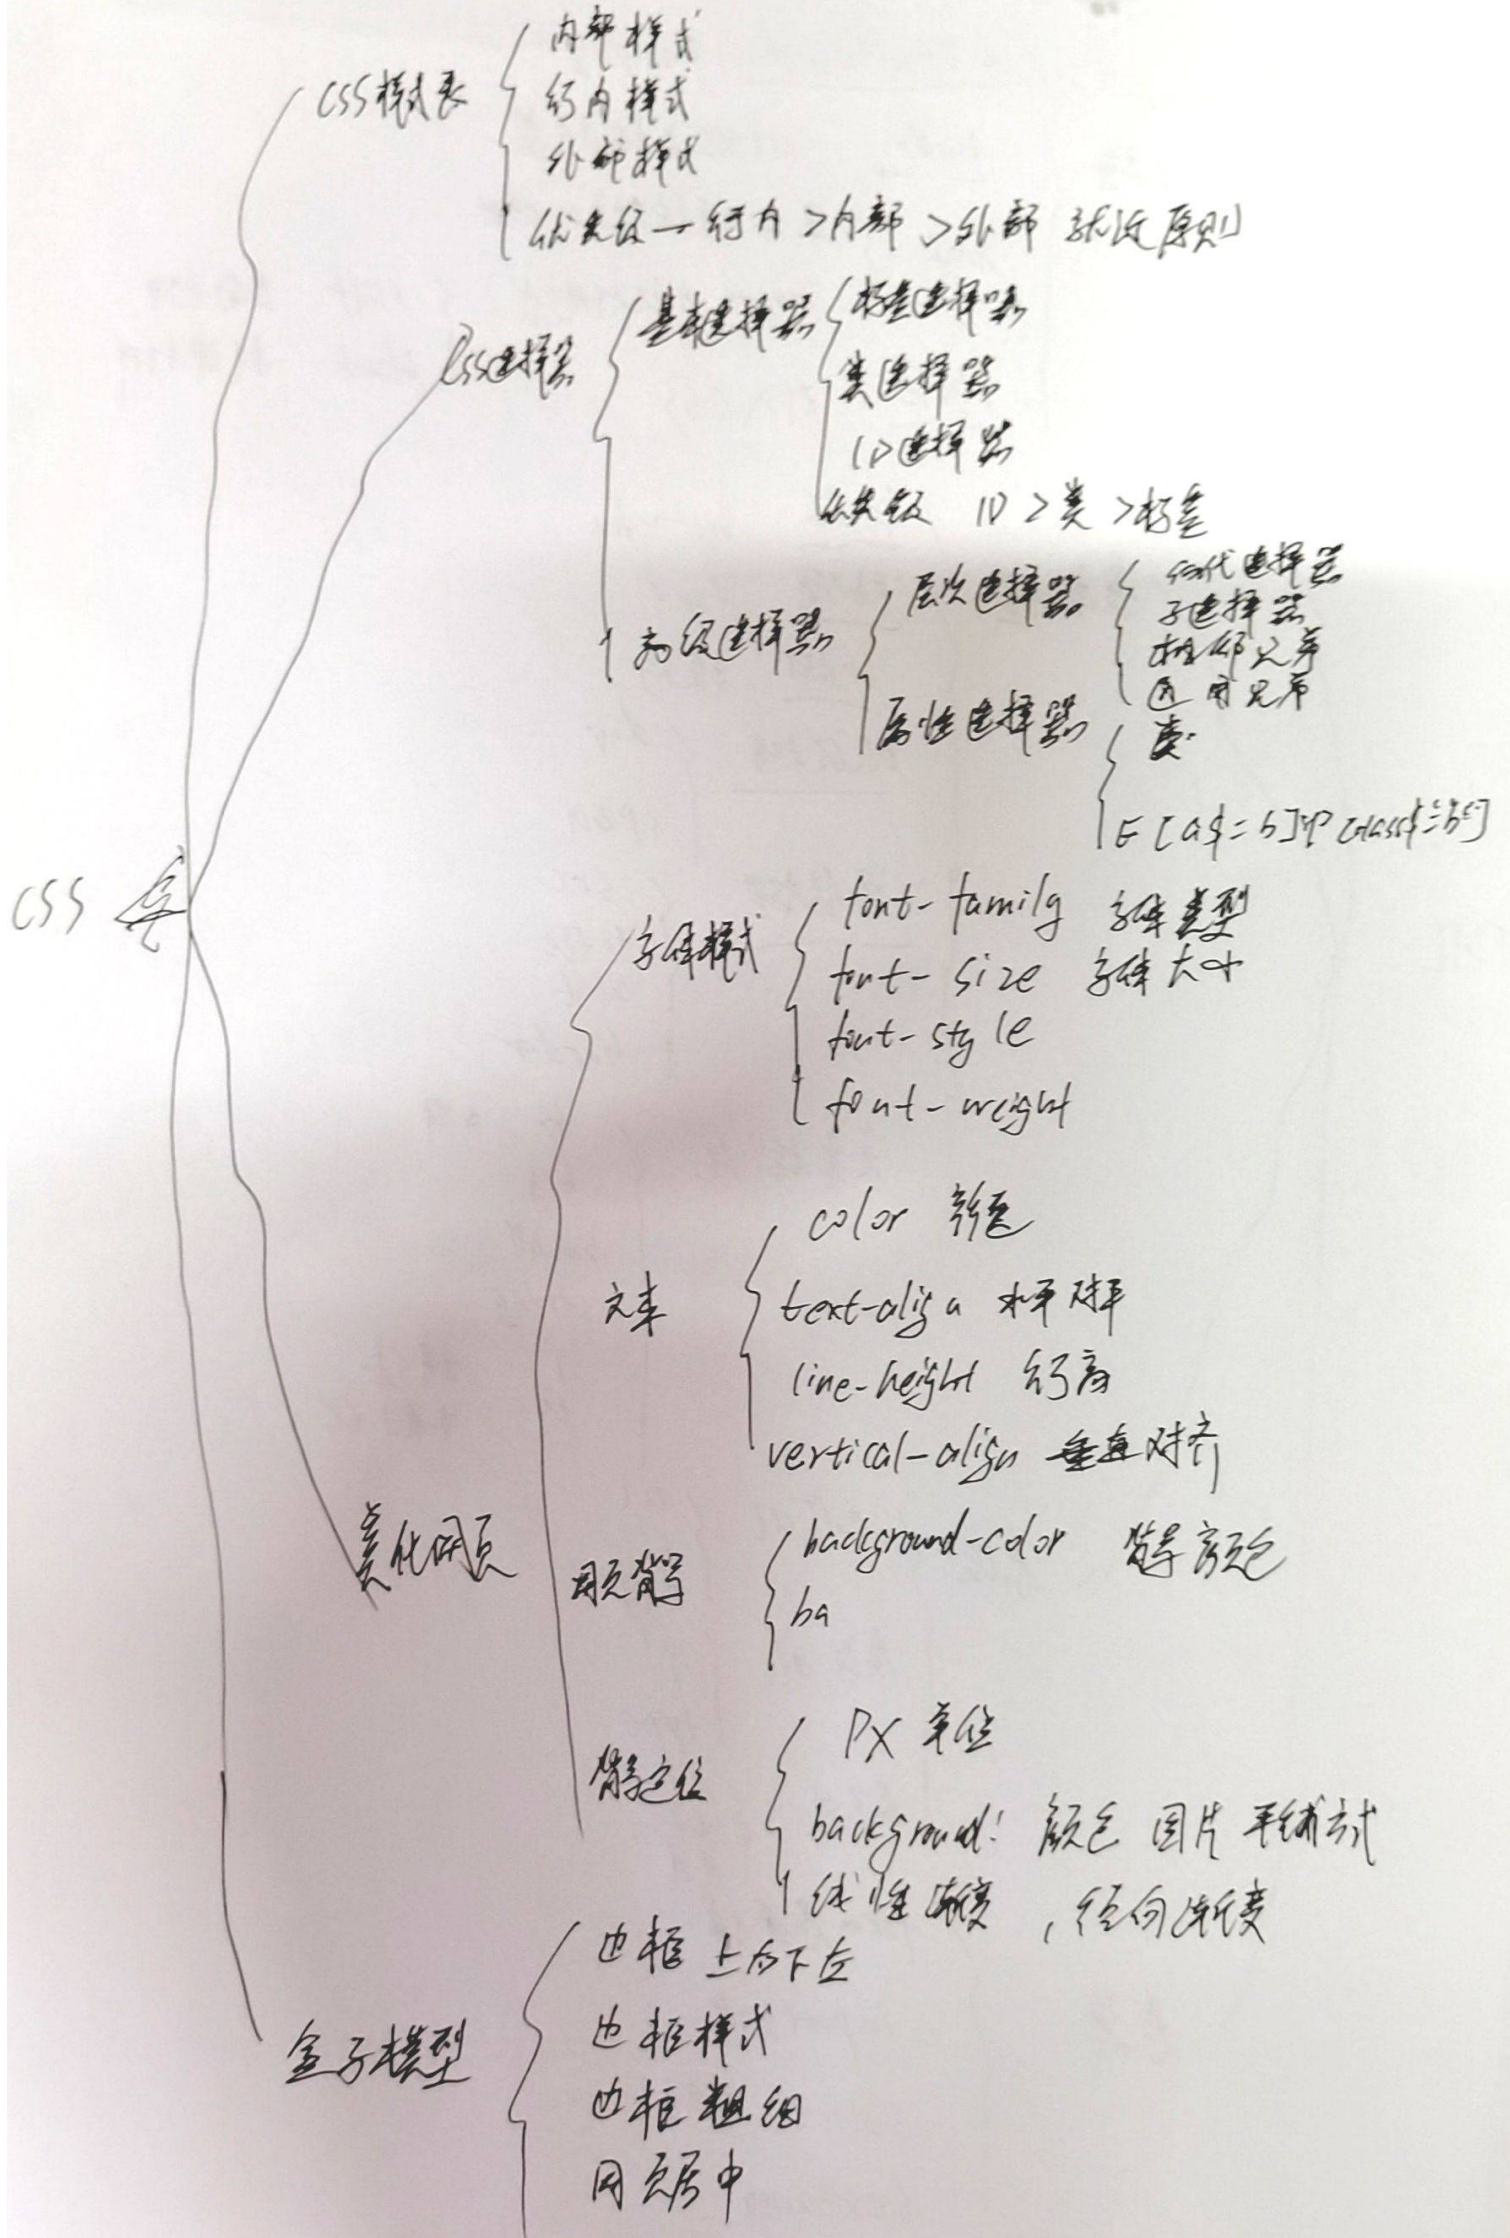 CSS
CSS样式表
内部样式
行内样式
外部样式
优先级—行内>内部>外部 就近原则
CSS选择器
基本选择器
标签选择器
类选择器
ID选择器
优先级 ID>类>标签
高级选择器
层次选择器
后代选择器
子选择器
相邻兄弟
通用兄弟
属性选择器
类
E[a$=b]
美化网页
字体样式
font-family 字体类型
font-size 字体大小
font-style
font-weight
文本
color 颜色
text-align 水平对齐
line-height 行高
vertical-align 垂直对齐
网页背景
background-color 背景颜色
ba
背景定位
PX 单位
background: 颜色 图片 平铺方式
线性渐变,径向渐变
盒子模型
边框 上右下左
边框样式
边框粗细
网页居中